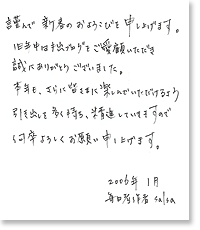 謹んで 新春のおよろこびを申し上げます。
旧年中は拙ブログをご愛顧いただき
誠にありがとうございました。
本年も、さらに皆さまに楽しんでいただけるよう
引き出しを多く持ち、精進していきますので
何卒よろしくお願い申し上げます。
2006年 1月
毎日 作者 salsa